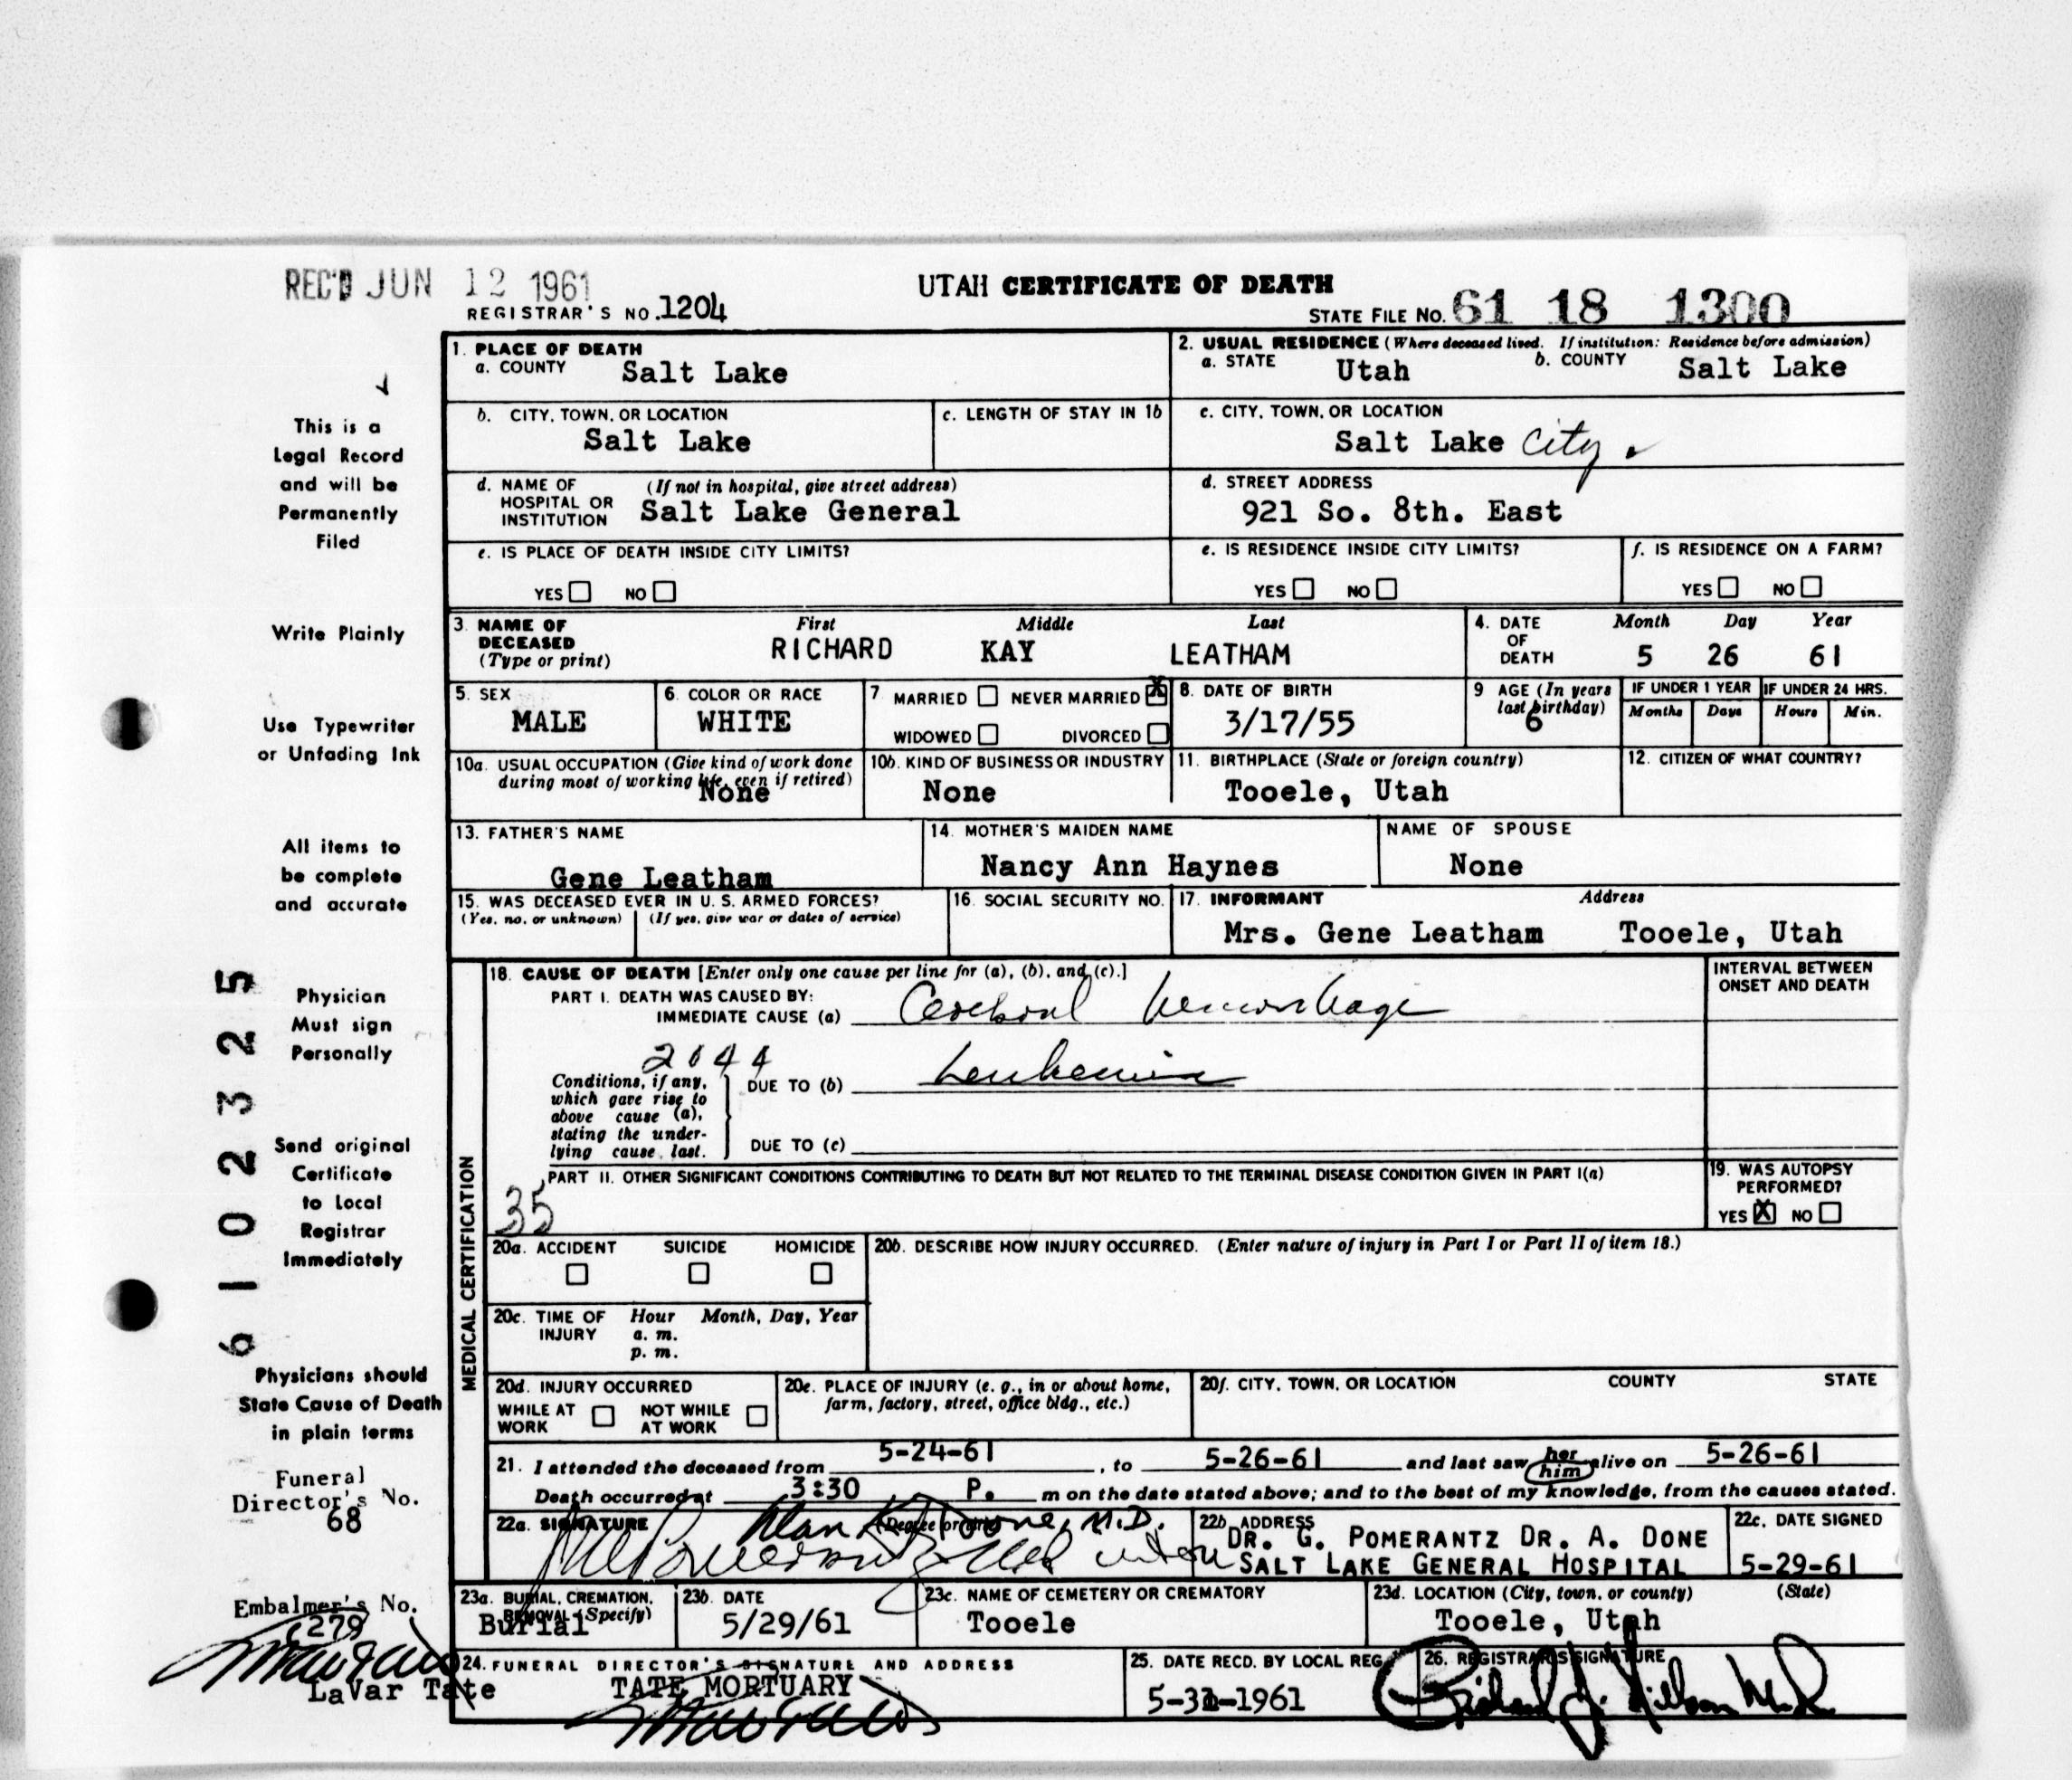 REC'D JUN 12 1961
REGISTRAR'S NO. 1204
UTAH CERTIFICATE OF DEATH
STATE FILE NO. 61 18 1300
This is a
Legal Record
and will be
Permanently
Filed
Write Plainly
Use Typewriter
or Unfading Ink
All items to
be complete
and accurate
Physician
Must sign
Personally
Send original
Certificate
to Local
Registrar
Immediately
Physicians should
State Cause of Death
in plain terms
Funeral
Director's No.
68
Embalmer's No.
279
LaVar Tate
6102325
1. PLACE OF DEATH
a. COUNTY Salt Lake
2. USUAL RESIDENCE (Where deceased lived. If institution: Residence before admission)
a. STATE Utah b. COUNTY Salt Lake
b. CITY, TOWN, OR LOCATION
Salt Lake
c. LENGTH OF STAY IN 1b
c. CITY, TOWN, OR LOCATION
Salt Lake City.
d. NAME OF HOSPITAL OR INSTITUTION (If not in hospital, give street address)
Salt Lake General
d. STREET ADDRESS
921 So. 8th. East
e. IS PLACE OF DEATH INSIDE CITY LIMITS?
YES NO
e. IS RESIDENCE INSIDE CITY LIMITS?
YES NO
f. IS RESIDENCE ON A FARM?
YES NO
3. NAME OF DECEASED (Type or print)
First Middle Last
RICHARD KAY LEATHAM
4. DATE OF DEATH
Month Day Year
5 26 61
5. SEX
MALE
6. COLOR OR RACE
WHITE
7 MARRIED NEVER MARRIED X
WIDOWED DIVORCED
8. DATE OF BIRTH
3/17/55
9 AGE (In years last birthday)
6
IF UNDER 1 YEAR
Months Days
IF UNDER 24 HRS.
Hours Min.
10a. USUAL OCCUPATION (Give kind of work done during most of working life, even if retired)
None
10b. KIND OF BUSINESS OR INDUSTRY
None
11. BIRTHPLACE (State or foreign country)
Tooele, Utah
12. CITIZEN OF WHAT COUNTRY?
13. FATHER'S NAME
Gene Leatham
14. MOTHER'S MAIDEN NAME
Nancy Ann Haynes
NAME OF SPOUSE
None
15. WAS DECEASED EVER IN U. S. ARMED FORCES?
(Yes, no, or unknown) (If yes, give war or dates of service)
16. SOCIAL SECURITY NO.
17. INFORMANT Address
Mrs. Gene Leatham Tooele, Utah
MEDICAL CERTIFICATION
18. CAUSE OF DEATH [Enter only one cause per line for (a), (b), and (c).]
PART I. DEATH WAS CAUSED BY:
IMMEDIATE CAUSE (a) Cerebral hemorrhage
INTERVAL BETWEEN ONSET AND DEATH
2044
Conditions, if any, which gave rise to above cause (a), stating the underlying cause last.
DUE TO (b) Leukemia
DUE TO (c)
PART II. OTHER SIGNIFICANT CONDITIONS CONTRIBUTING TO DEATH BUT NOT RELATED TO THE TERMINAL DISEASE CONDITION GIVEN IN PART I(a)
35
19. WAS AUTOPSY PERFORMED?
YES X NO
20a. ACCIDENT SUICIDE HOMICIDE
20b. DESCRIBE HOW INJURY OCCURRED. (Enter nature of injury in Part I or Part II of item 18.)
20c. TIME OF INJURY Hour Month, Day, Year
a. m.
p. m.
20d. INJURY OCCURRED
WHILE AT WORK NOT WHILE AT WORK
20e. PLACE OF INJURY (e. g., in or about home, farm, factory, street, office bldg., etc.)
20f. CITY, TOWN, OR LOCATION COUNTY STATE
21. I attended the deceased from 5-24-61, to 5-26-61 and last saw her him alive on 5-26-61
Death occurred at 3:30 P. m on the date stated above; and to the best of my knowledge, from the causes stated.
22a. SIGNATURE (Degree or title)
Alan K. Done, M.D.
22b. ADDRESS
DR. G. POMERANTZ DR. A. DONE
SALT LAKE GENERAL HOSPITAL
22c. DATE SIGNED
5-29-61
23a. BURIAL, CREMATION, REMOVAL (Specify)
Burial
23b. DATE
5/29/61
23c. NAME OF CEMETERY OR CREMATORY
Tooele
23d. LOCATION (City, town, or county) (State)
Tooele, Utah
24. FUNERAL DIRECTOR'S SIGNATURE AND ADDRESS
TATE MORTUARY
25. DATE RECD. BY LOCAL REG.
5-31-1961
26. REGISTRAR'S SIGNATURE